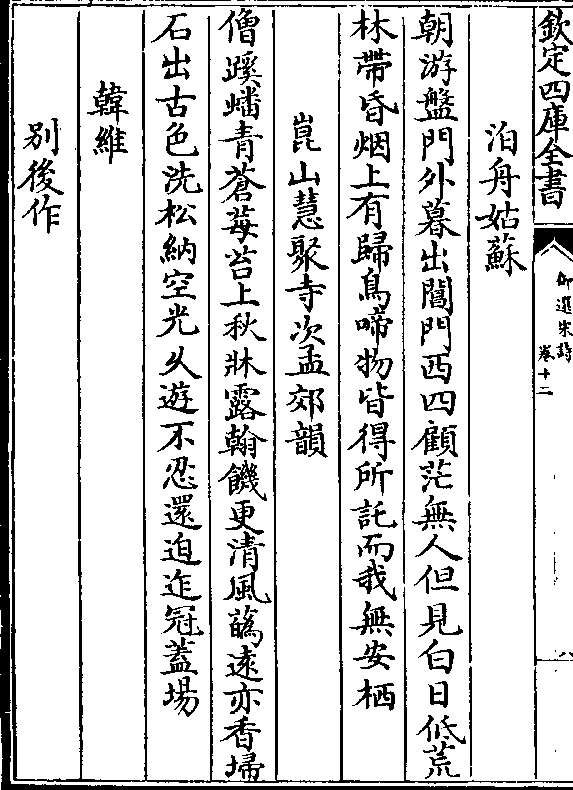 欽定四庫全書
御選宋詩
卷十二
八
泊舟姑蘇
朝游盤門外暮出閶門西四顧茫無人但見白日低荒
林帶昏烟上有歸鳥啼物皆得所託而我無安栖
崑山慧聚寺次孟郊韻
僧蹊蟠青蒼莓苔上秋牀露翰饑更清風蘤遠亦香埽
石出古色洗松納空光乆遊不忍還迫迮冠蓋場
韓維
別後作